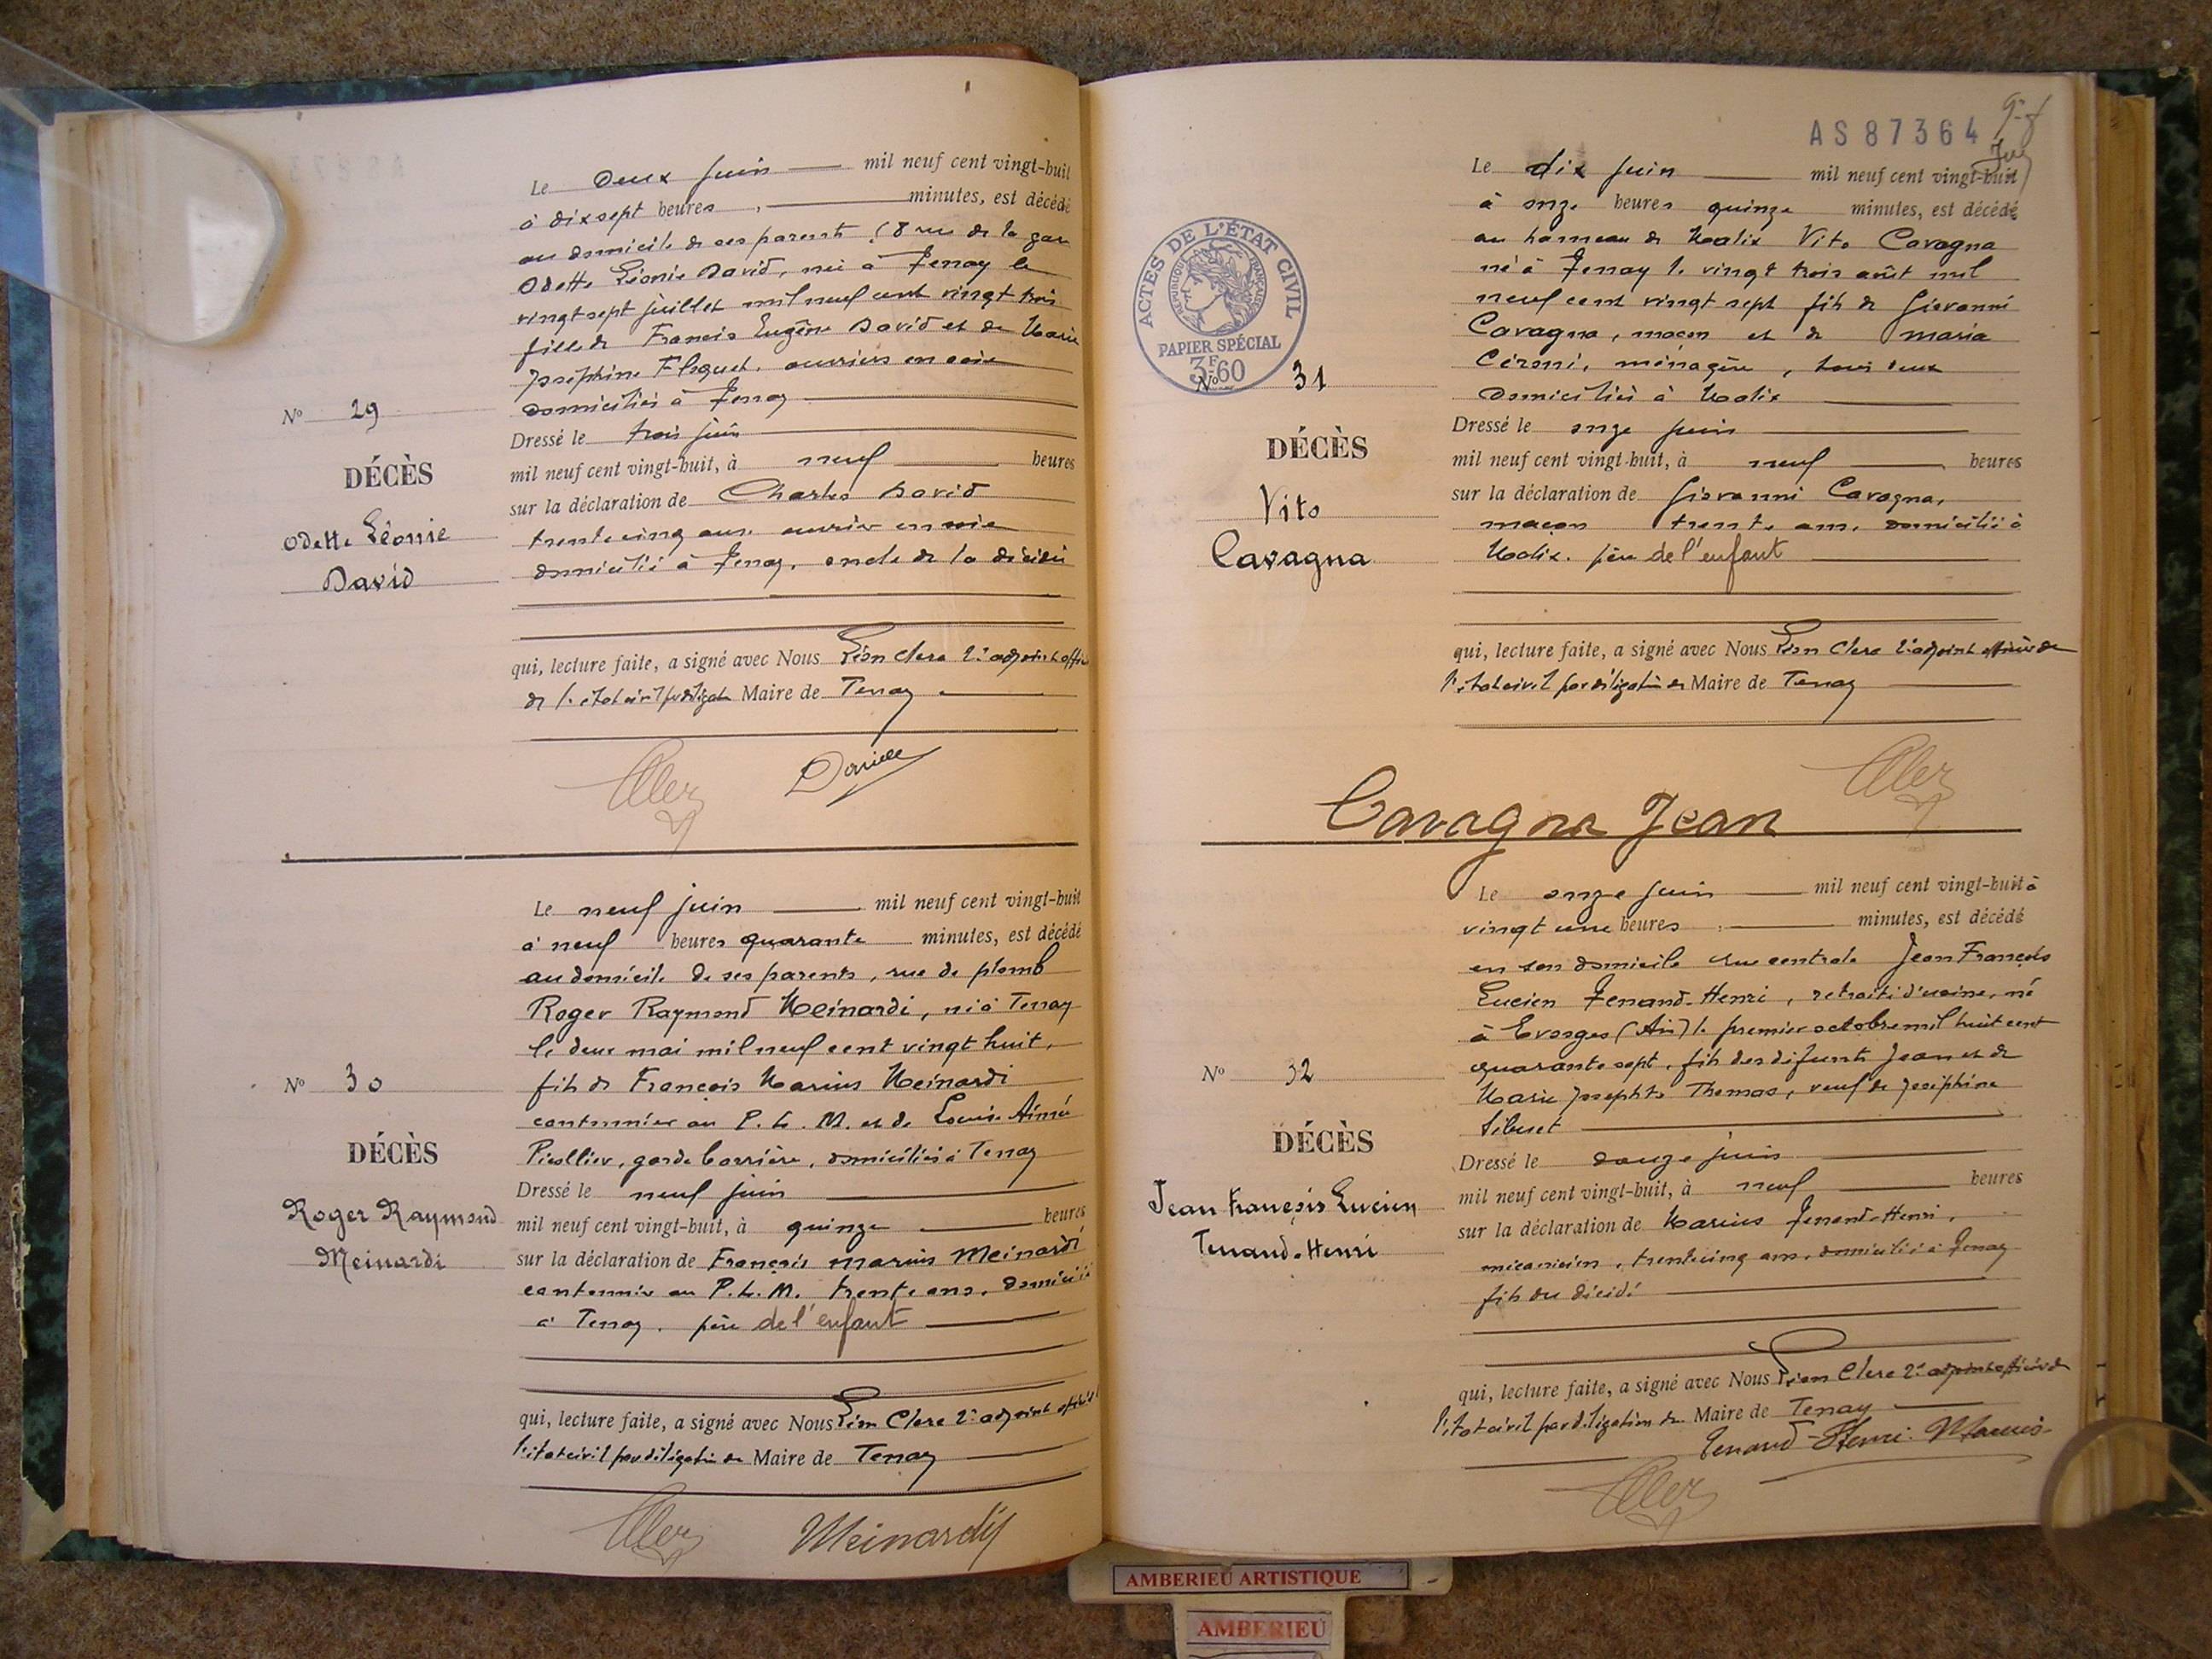 Le deux juin mil neuf cent vingt-huit
à dix sept heures, minutes, est décédé
au domicile de ses parents (8 rue de la gare
Odette Léonie David, née à Tenay le
vingt sept juillet mil neuf cent vingt trois
fille de Francis Eugène David et de Marie
Joséphine Floquet, ouvriers en soie
domiciliés à Tenay
Nº 29
DÉCÈS
Odette Léonie
David
Dressé le trois juin
mil neuf cent vingt-huit, à neuf heures
sur la déclaration de Charles David
trente cinq ans, ouvrier en soie
domicilié à Tenay, oncle de la décédée
qui, lecture faite, a signé avec Nous Léon Clerc 2e adjoint offic
de l'état civil par délégat Maire de Tenay
Le neuf juin mil neuf cent vingt-huit
à neuf heures quarante minutes, est décédé
au domicile de ses parents, rue de plomb
Roger Raymond Meinardi, né à Tenay
le deux mai mil neuf cent vingt huit,
fils de François Marius Meinardi
cantonnier au P. L. M. et de Louise Aimée
garde barrière, domiciliés à Tenay
Nº 30
DÉCÈS
Roger Raymond
Meinardi
Dressé le neuf juin
mil neuf cent vingt-huit, à quinze heures
sur la déclaration de François Marius Meinardi
cantonnier au P. L. M. trente ans, domicilié
à Tenay, père de l'enfant
qui, lecture faite, a signé avec Nous Léon Clerc 2e adjoint officier
l'état civil par délégation du Maire de Tenay
Meinardi
AS87364
Le dix juin mil neuf cent vingt-huit
à onze heures quinze minutes, est décédé
au hameau de Malix Vito Cavagna
né à Tenay le vingt trois août mil
neuf cent vingt sept fils de Giovanni
Cavagna, maçon et de Maria
Céroni, ménagère, tous deux
domiciliés à Malix
ACTES DE L'ÉTAT CIVIL
RÉPUBLIQUE FRANÇAISE
PAPIER SPÉCIAL
3F60
Nº 31
DÉCÈS
Vito
Cavagna
Dressé le onze juin
mil neuf cent vingt-huit, à neuf heures
sur la déclaration de Giovanni Cavagna,
maçon trente ans, domicilié à
Malix, père de l'enfant
qui, lecture faite, a signé avec Nous Léon Clerc 2e adjoint officier de
l'état civil par délégation du Maire de Tenay
Cavagna Jean
Le onze juin mil neuf cent vingt-huit à
vingt une heures minutes, est décédé
en son domicile rue centrale Jean François
Lucien Tenand-Henri, retraité d'usine, né
à Evosges (Ain) le premier octobre mil huit cent
quarante sept, fils des défunts Jean et de
Marie Josephte Thomas, veuf de Joséphine
Nº 32
DÉCÈS
Jean François Lucien
Tenand-Henri
Dressé le douze juin
mil neuf cent vingt-huit, à neuf heures
sur la déclaration de Marius Tenand-Henri,
mécanicien, trente cinq ans, domicilié à Tenay
fils du décédé
qui, lecture faite, a signé avec Nous Léon Clerc 2e adjoint officier de
l'état civil par délégation du Maire de Tenay
Tenand-Henri Marius
AMBERIEU ARTISTIQUE
AMBERIEU